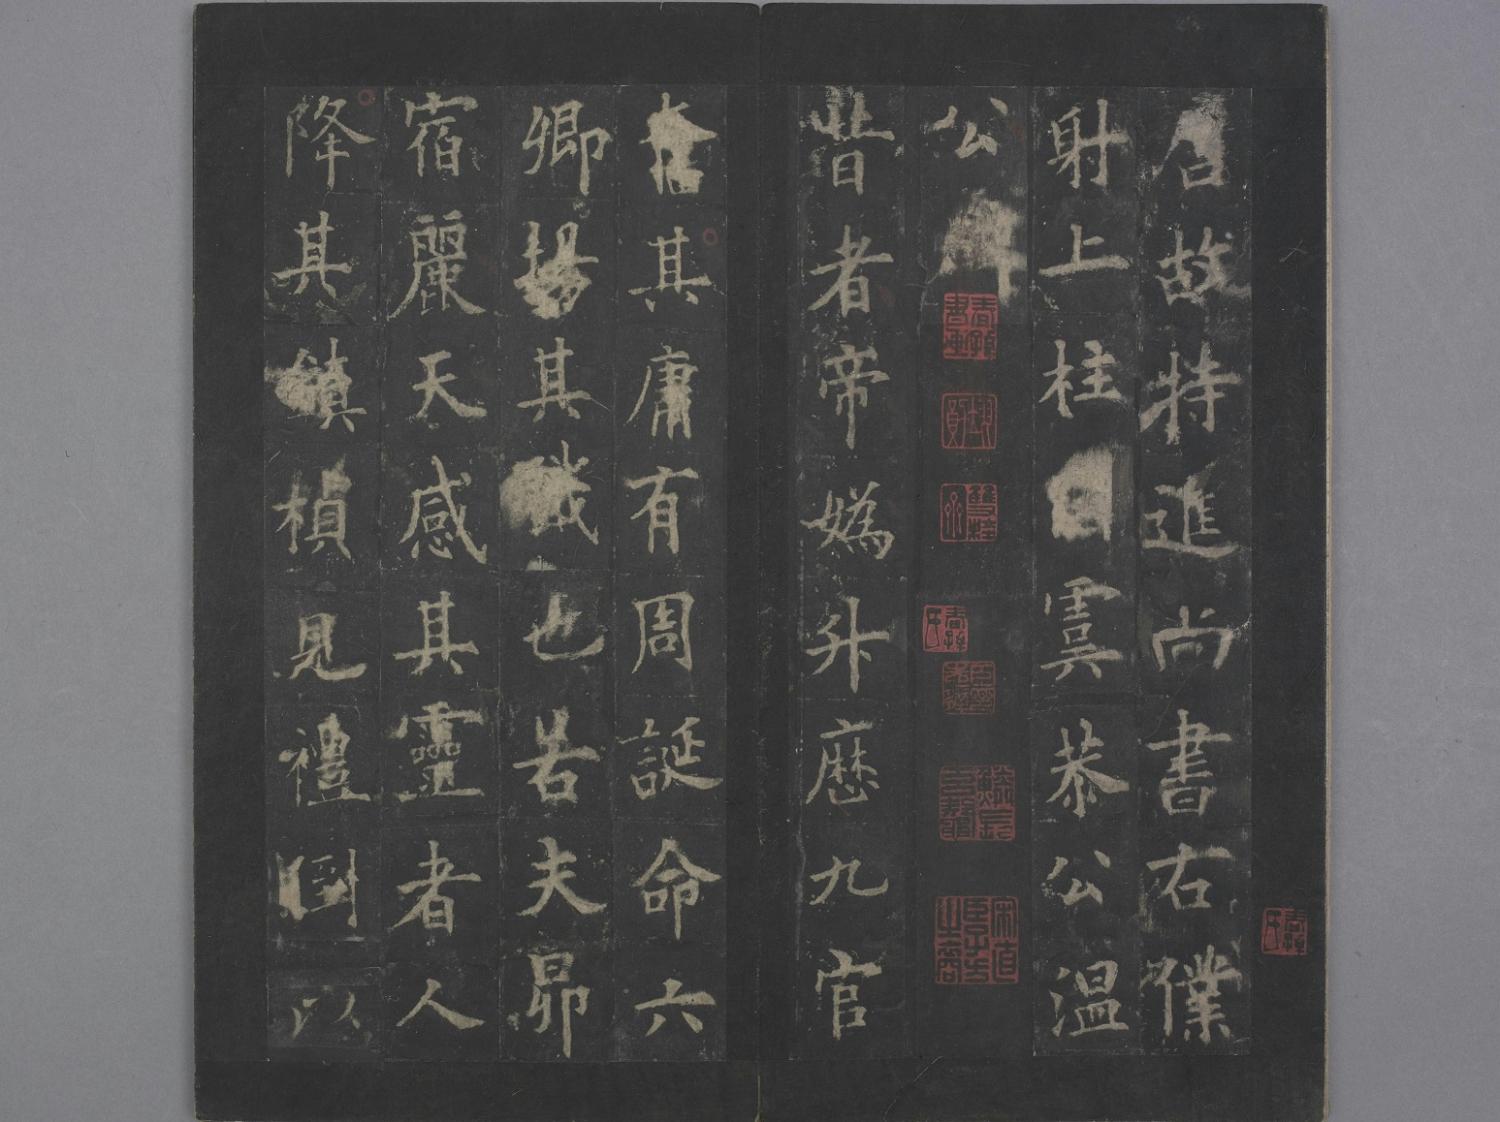 唐故特進尚書右僕
射上柱國虞恭公溫
公碑
昔者帝媯升厯九官
奮其庸有周誕命六
卿揚其職也若夫昴
宿麗天感其靈者人
降其鎮楨見禮以